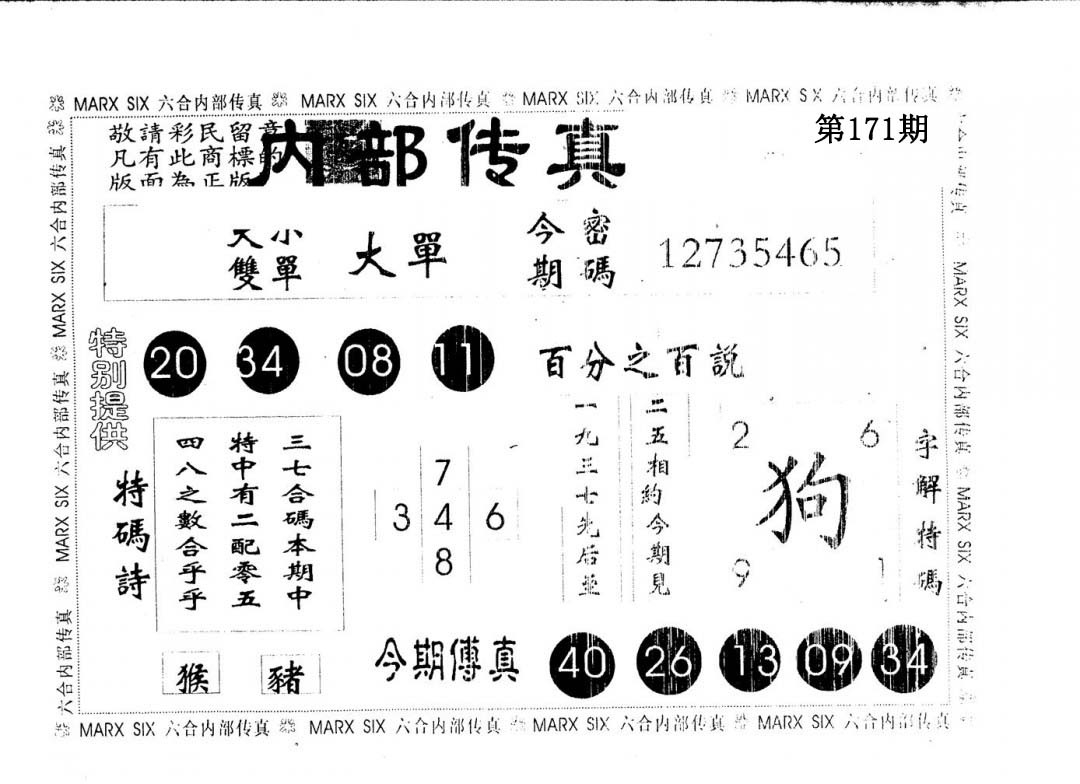 MARX SIX 六合内部传真 MARX SIX 六合内部传真 MARX SIX 六合内部传真 MARX SIX 六合内部传真
敬請彩民留意
凡有此商標的
版面為正版
内部传真
第171期
大小
雙單
大單
今期
密碼
12735465
特别提供
20 34 08 11
百分之百説
特碼詩
三七合碼本期中
特中有二配零五
四八之數合乎乎
7
3 4 6
8
二五相約今期見
一九三七先后並
2 6
狗
9 1
字解特碼
猴 豬
今期傳真
40 26 13 09 34
MARX SIX 六合内部传真 MARX SIX 六合内部传真 MARX SIX 六合内部传真 MARX SIX 六合内部传真
MARX SIX 六合内部传真 MARX SIX 六合内部传真
MARX SIX 六合内部传真 MARX SIX 六合内部传真